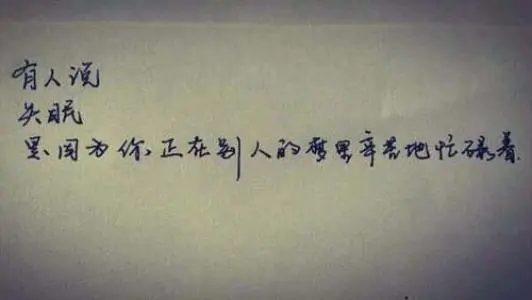 有人说
失眠
是因为你正在别人的梦里辛苦地忙碌着.